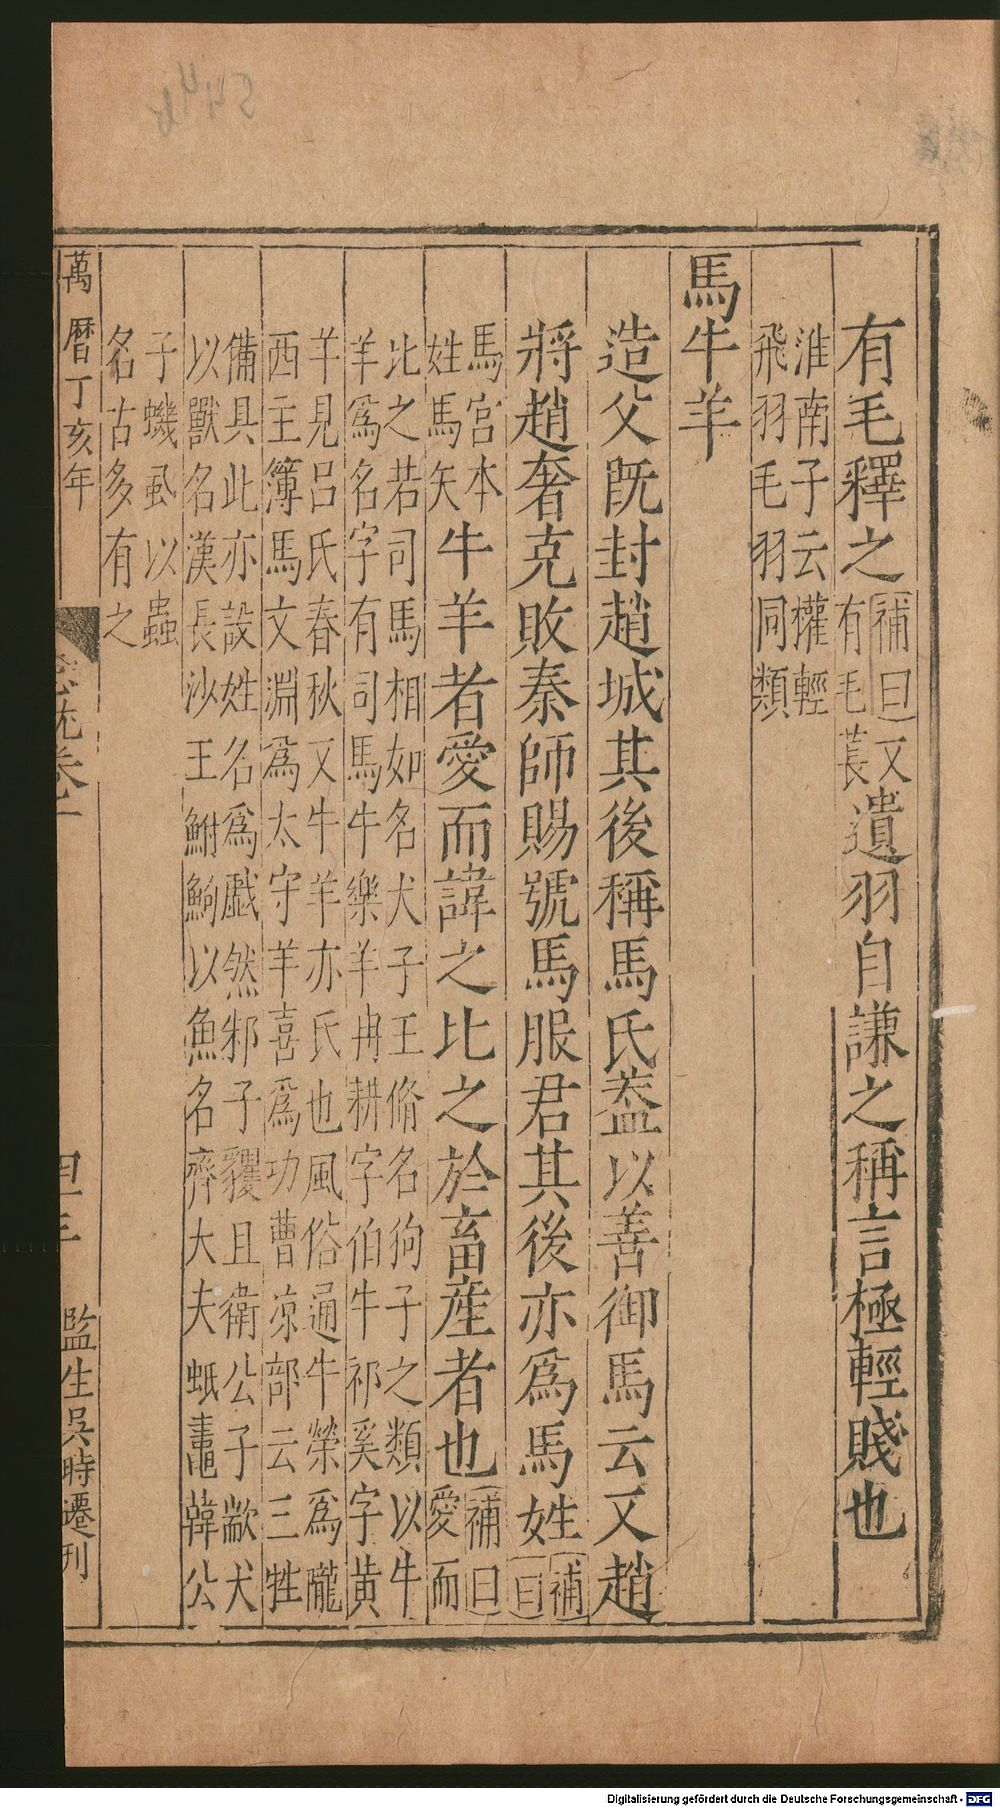 有毛釋之補曰又
有毛萇遺羽自謙之稱言極輕賤也
淮南子云權輕
飛羽毛羽同類
馬牛羊
造父既封趙城其後稱馬氏葢以善御馬云又趙
將趙奢克敗秦師賜號馬服君其後亦爲馬姓補曰
馬宮本
姓馬矢牛羊者愛而諱之比之於畜産者也補曰
愛而
比之若司馬相如名犬子王脩名狗子之類以牛
羊爲名字有司馬牛樂羊冉耕字伯牛祁奚字黄
羊見呂氏春秋又牛羊亦氏也風俗通牛榮爲隴
西主簿馬文淵爲太守羊喜爲功曹凉部云三牲
備具此亦設姓名爲戲然邾子貜且衛公子歂犬
以獸名漢長沙王鮒鮈以魚名齊大夫蚔鼃韓公
子蟣虱以蟲
名古多有之
萬曆丁亥年
監生吳時遷刊
Digitalisierung gefördert durch die Deutsche Forschungsgemeinschaft - DFG